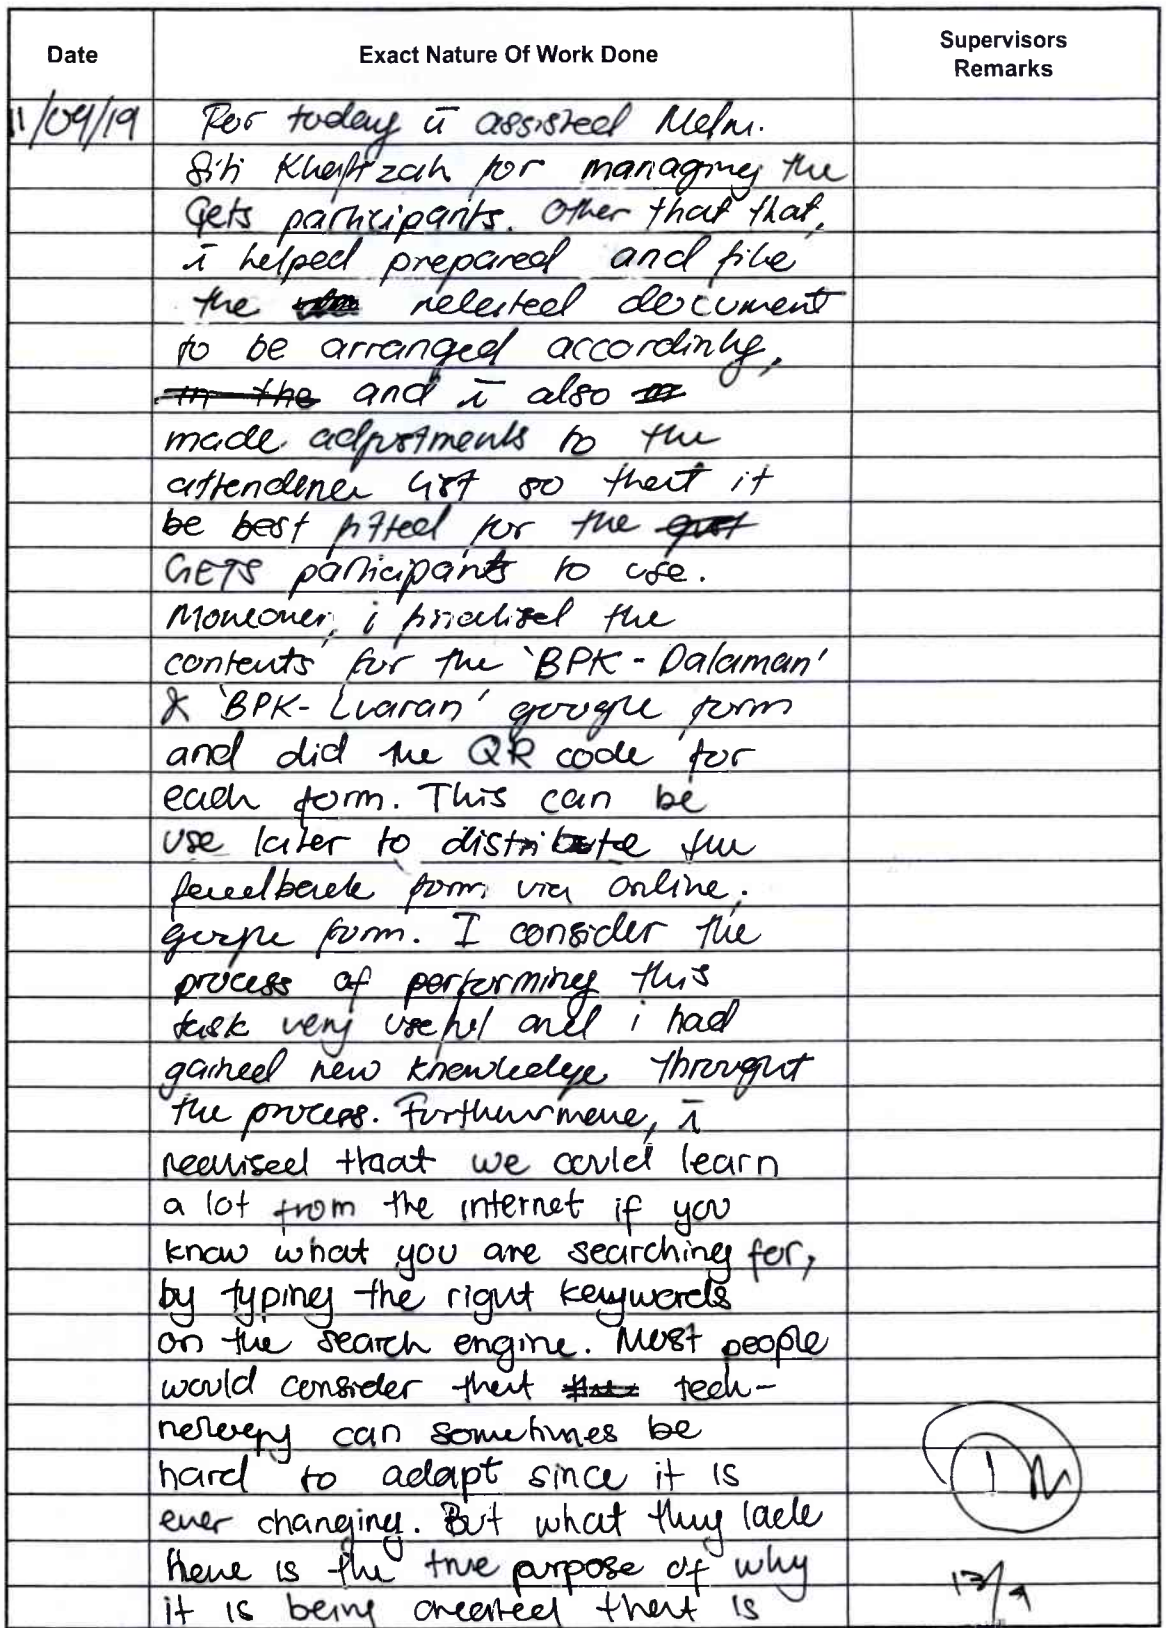 Date
Exact Nature Of Work Done
Supervisors
Remarks
11/09/19
For today i assisted Mdm.
Siti Khafizah for managing the
Gets participants. Other that that,
i helped prepared and file
the related document
to be arranged accordinly,
in the and i also
made adjustments to the
attendance list so that it
be best fitted for the
GETS participants to use.
Moreover, i finalised the
contents for the 'BPK - Dalaman'
& 'BPK - Luaran' google form
and did the QR code for
each form. This can be
use later to distribute the
feedback form via online,
google form. I consider the
process of performing this
task very useful and i had
gained new knowledge throught
the process. Furthermore, i
realised thaat we could learn
a lot from the internet if you
know what you are searching for,
by typing the right keywords
on the search engine. Most people
would consider that tech-
nology can sometimes be
hard to adapt since it is
ever changing. But what they lack
here is the true purpose of why
it is being created that is
13/9